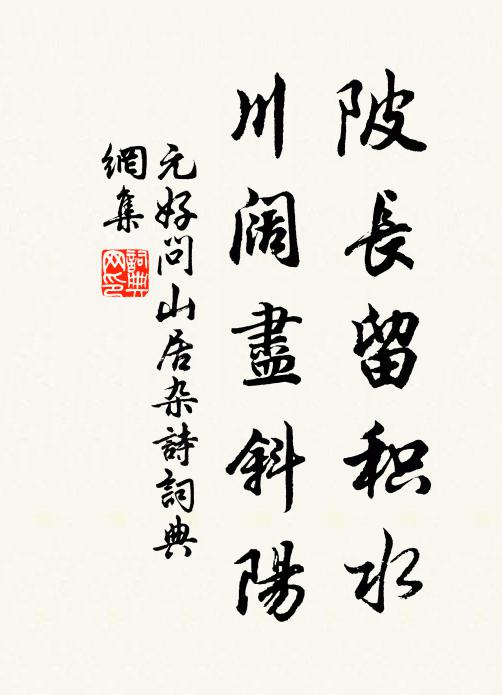 陂長留积水
川阔盡斜陽
元好问山居杂詩詞典
網集
詞典
网印